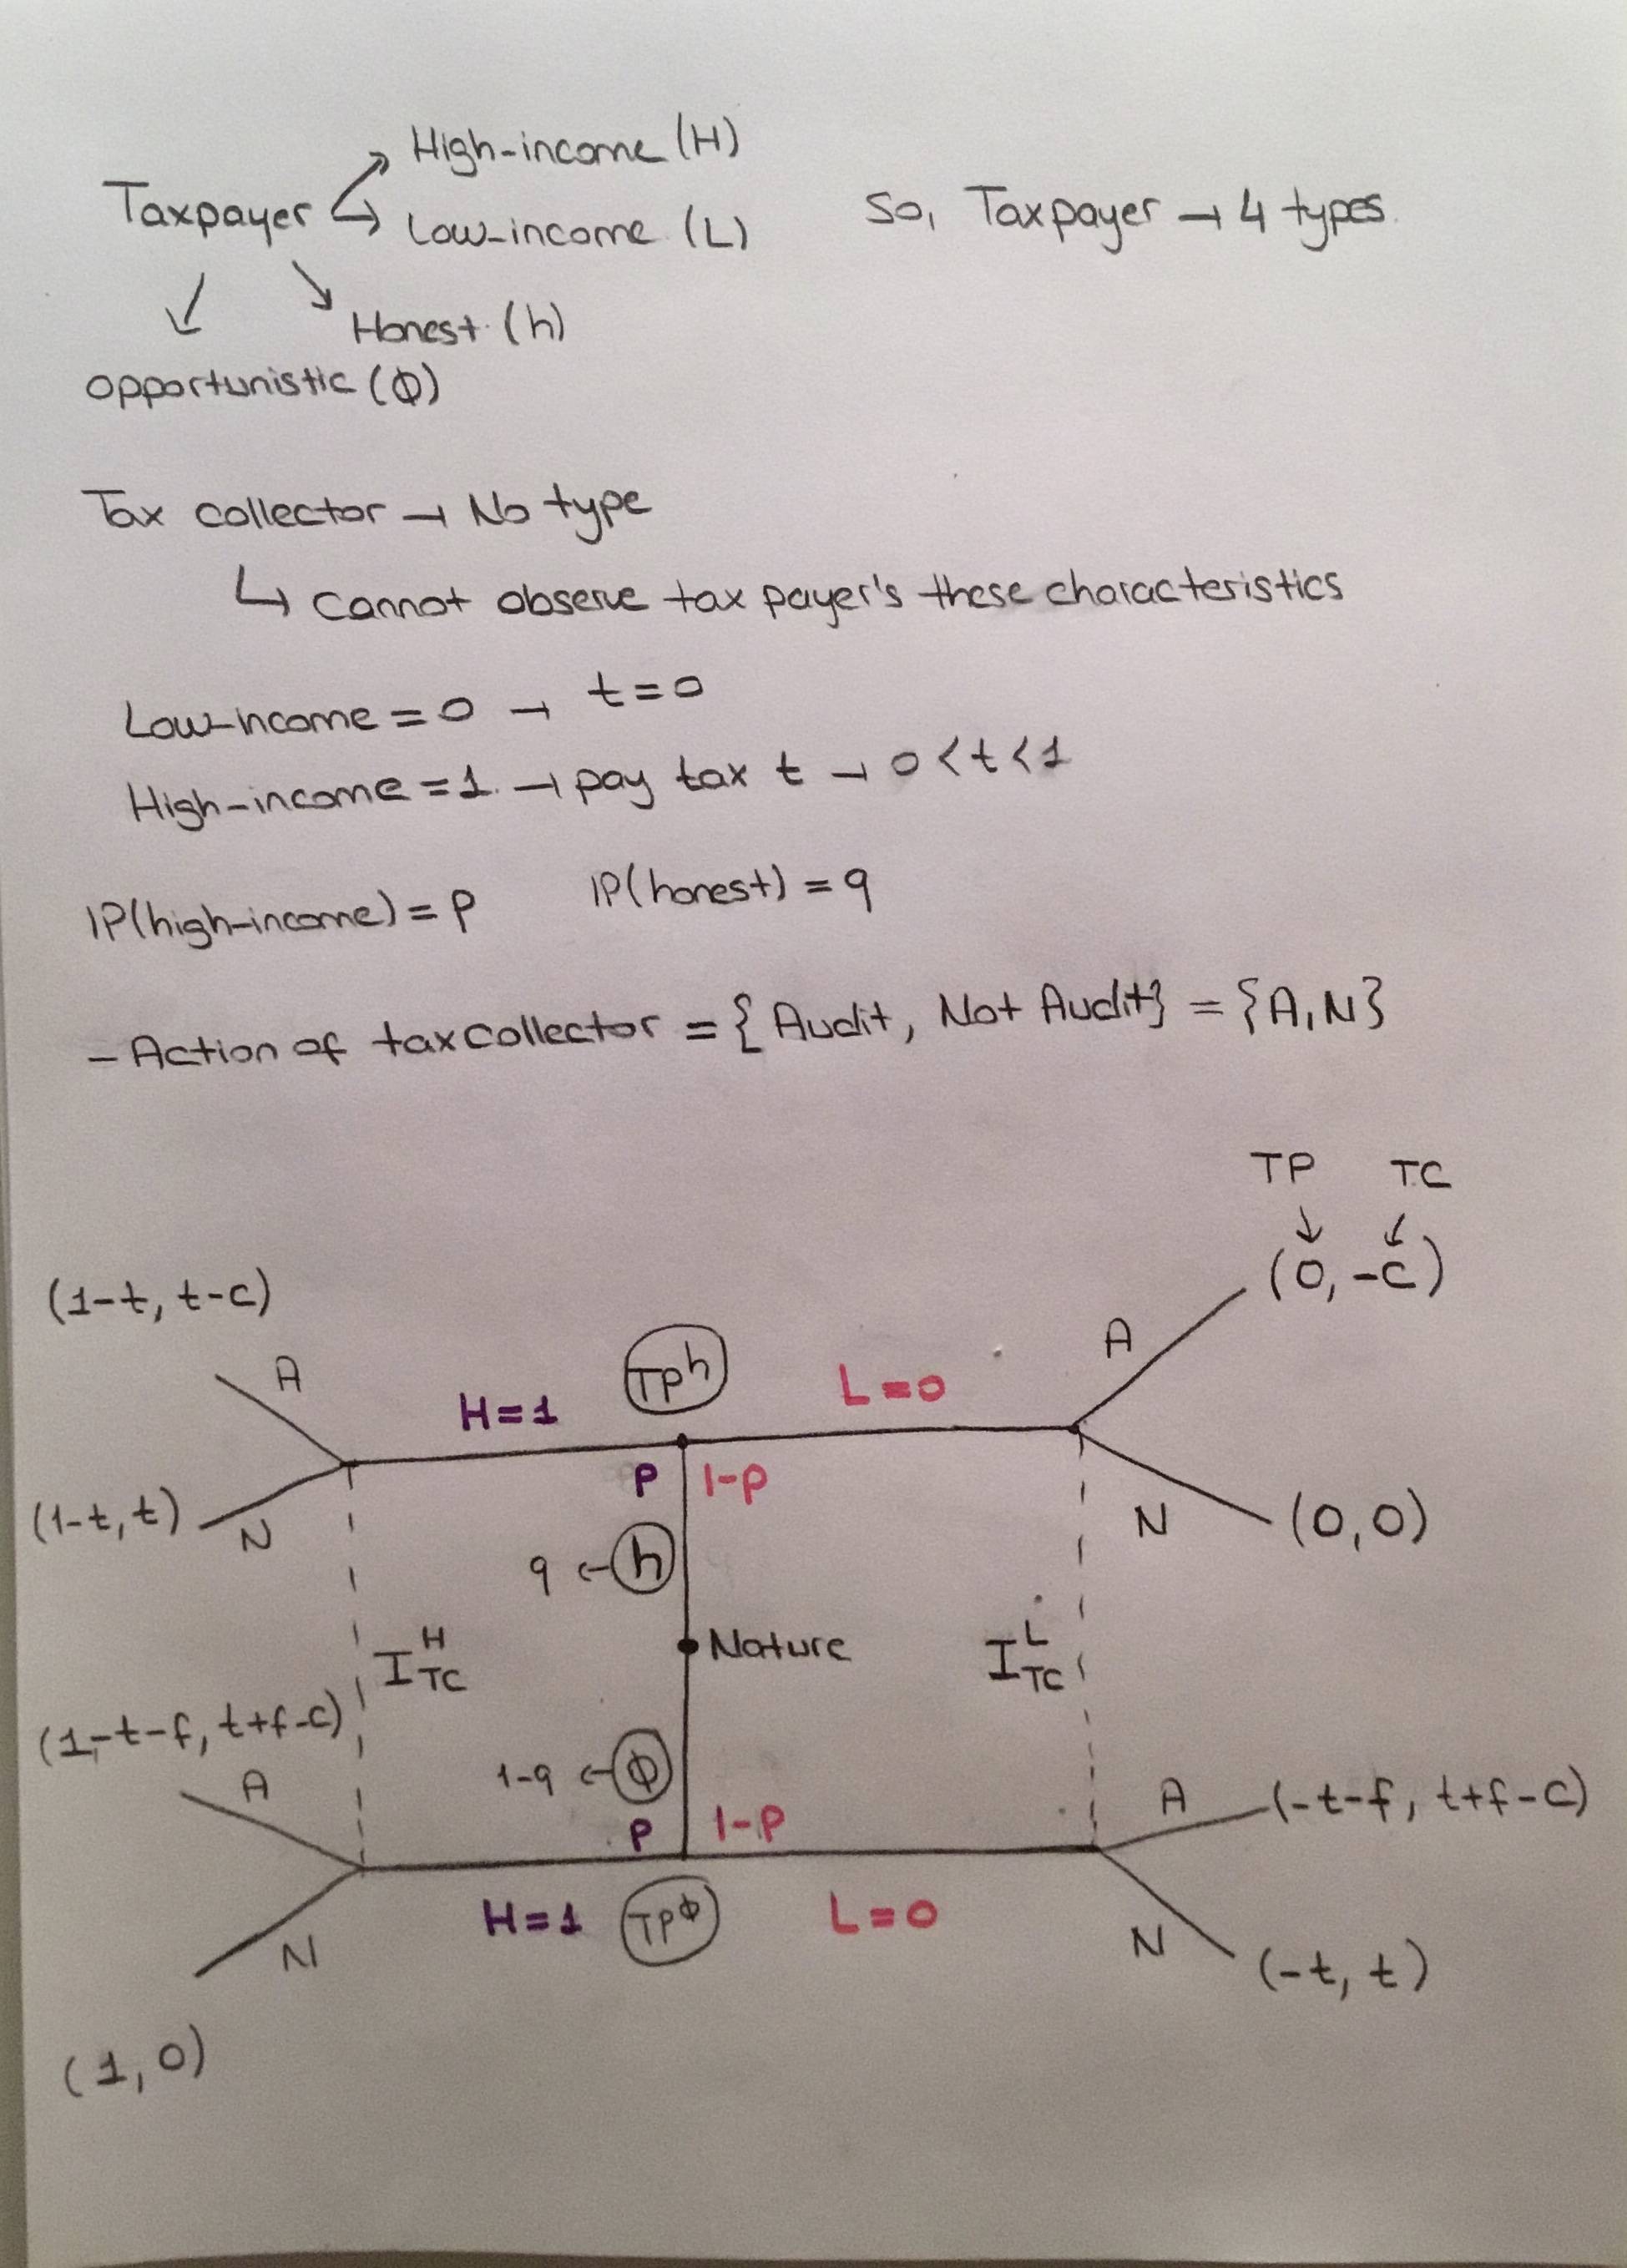 High-income (H)
Taxpayer
Low-income (L)
So, Taxpayer → 4 types.
Honest (h)
opportunistic (Φ)
Tax collector → No type
↳ cannot observe tax payer's these characteristics
Low-income = 0 → t=0
High-income = 1. → pay tax t → 0<t<1
IP(high-income) = p IP(honest) = q
- Action of tax collector = {Audit, Not Audit} = {A,N}
TP TC
(0, -c)
(1-t, t-c)
A
A
TPh
H=1
L=0
P 1-p
(1-t, t)
N
N
(0,0)
q ← h
Nature
I^H_TC
I^L_TC
(1-t-f, t+f-c)
A
1-q ← Φ
A
(-t-f, t+f-c)
P 1-P
H=1
TPΦ
L=0
N
N
(-t, t)
(1,0)